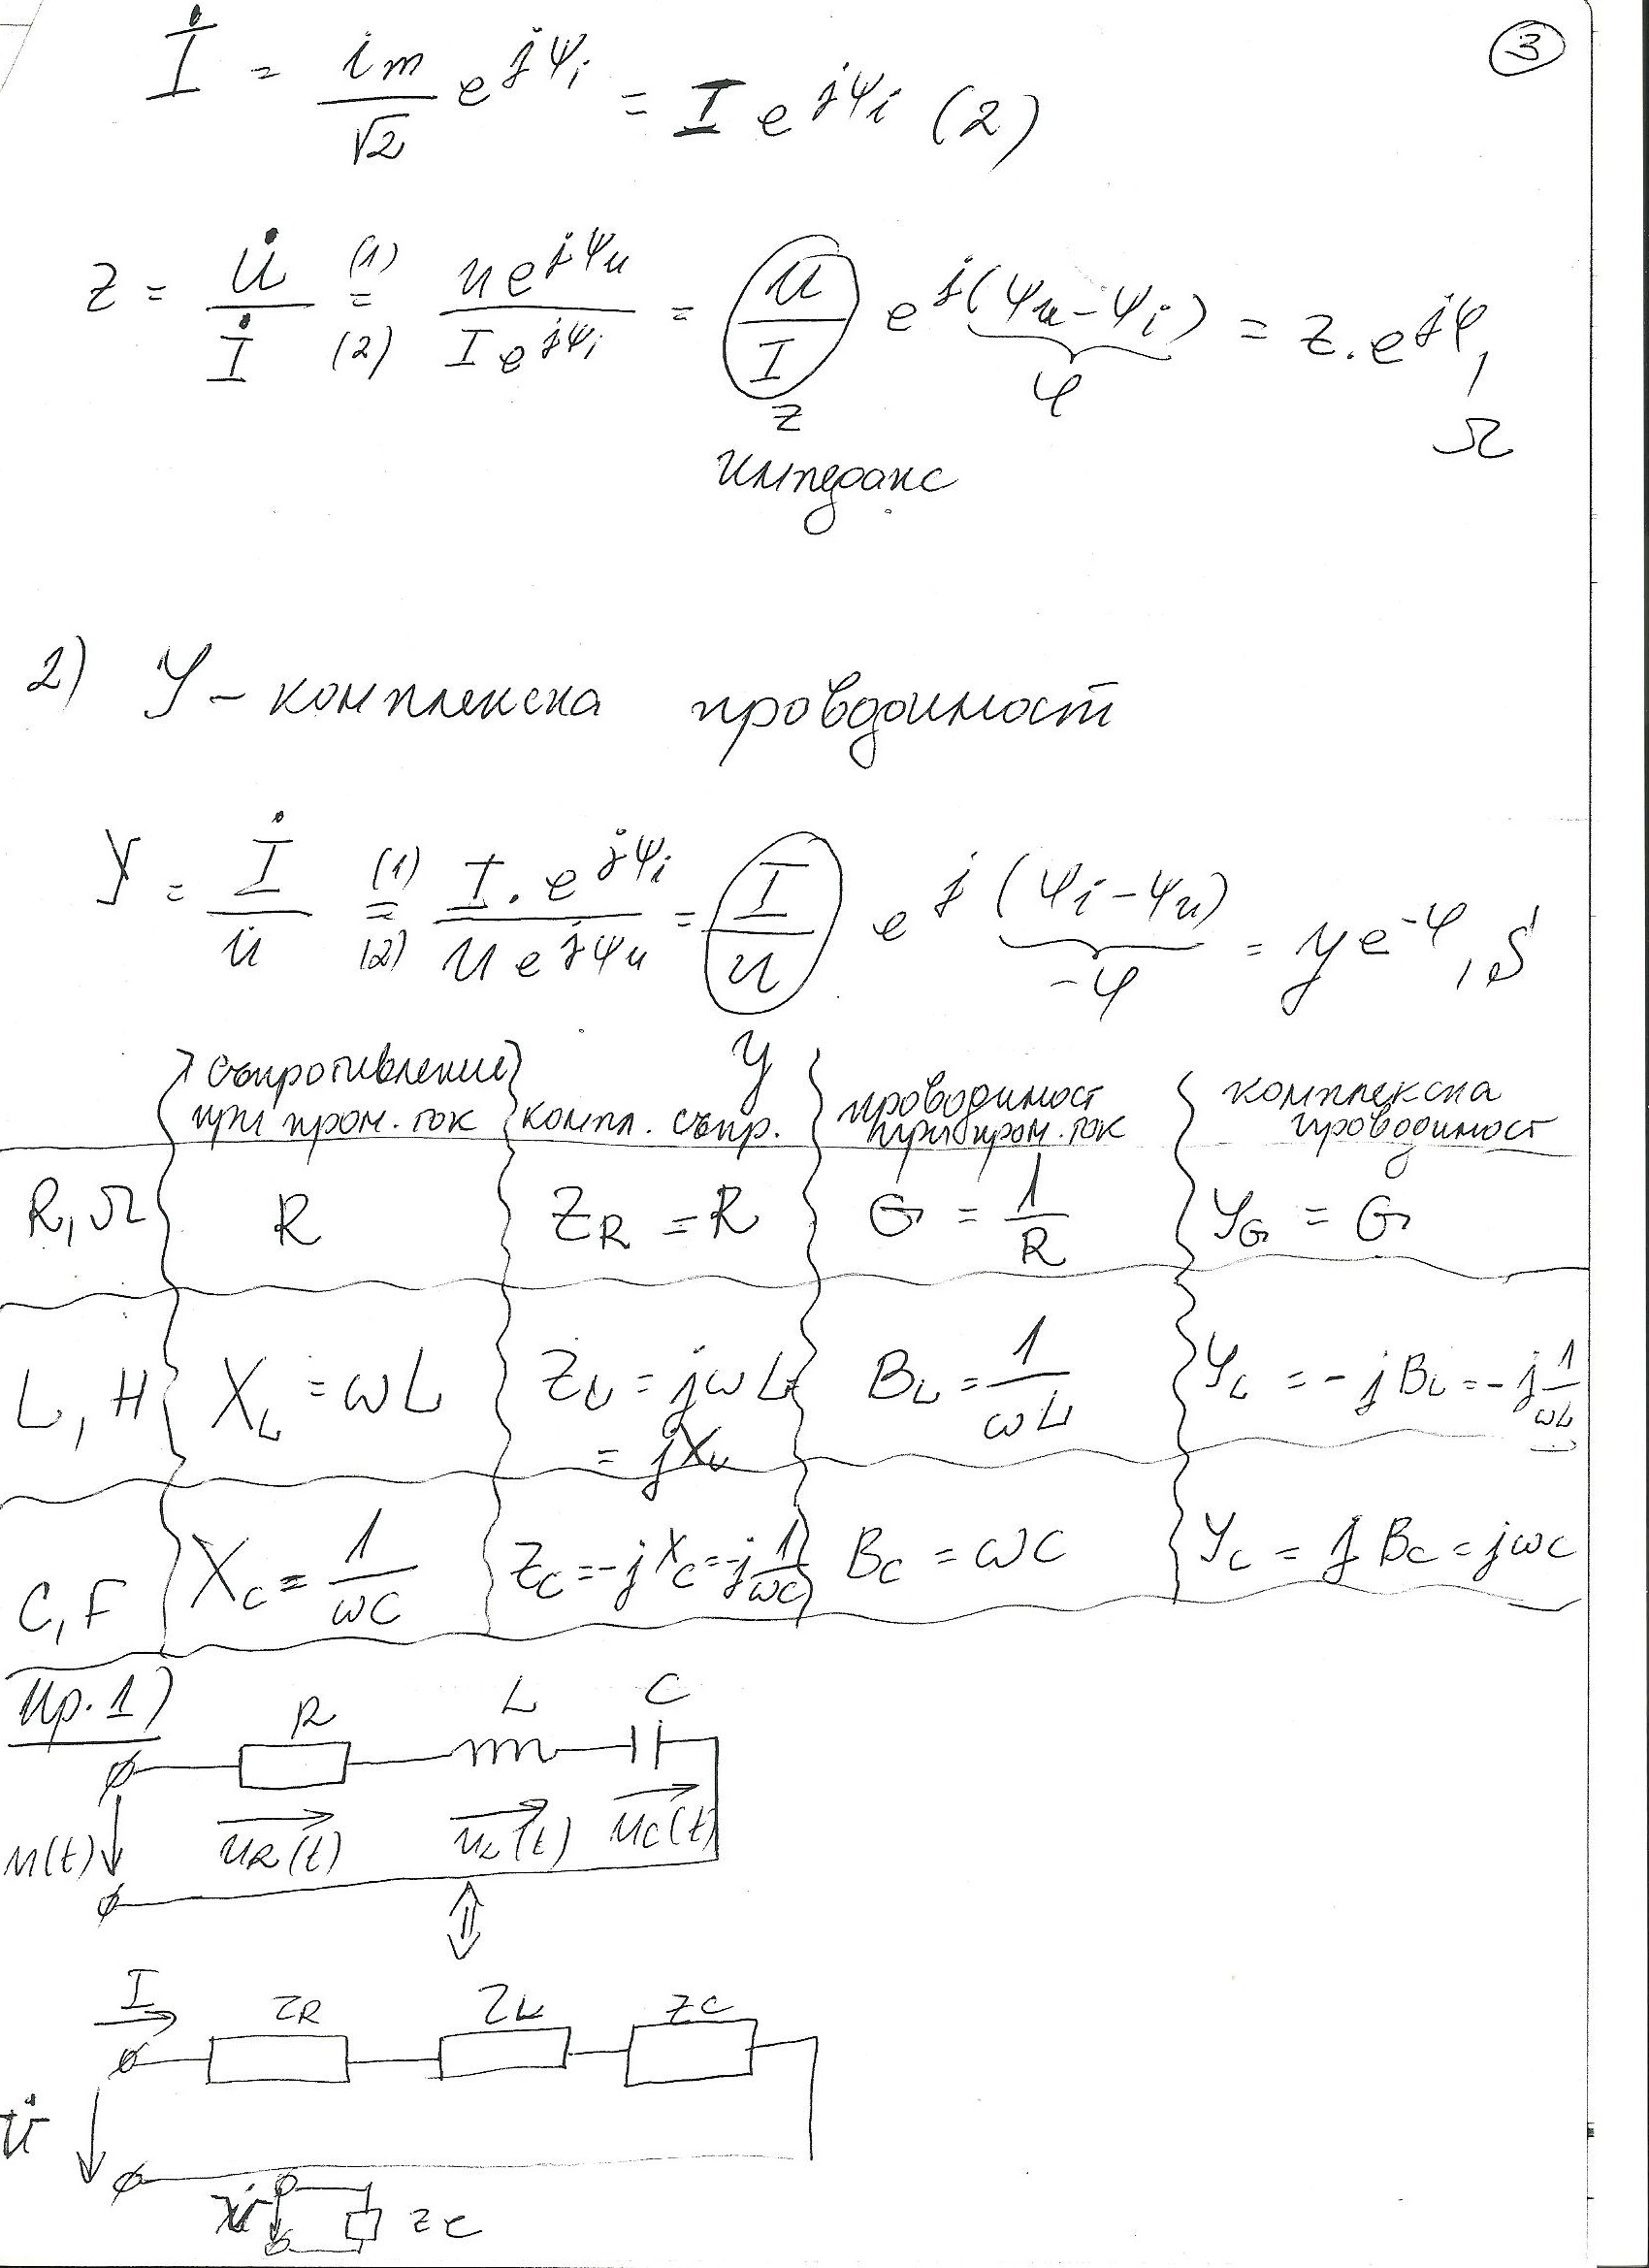 ③
İ = im/√2 e^jψi = I e^jψi (2)
Z = U̇/İ (1)=(2) U e^jψu / I e^jψi = U/I e^j(ψu-ψi) = z.e^jφ, Ω
z φ
импеданс
2) Y - комплексна проводимост
Y = İ/U̇ (1)=(2) I.e^jψi / U e^jψu = I/U e^j(ψi-ψu) = y e^-φ, S
y -φ
съпротивление при пром. ток
компл. съпр.
проводимост при пром. ток
комплексна проводимост
R, Ω R ZR = R G = 1/R YG = G
L, H XL = ωL ZL = jωL = jXL BL = 1/ωL YL = -jBL = -j 1/ωL
C, F XC = 1/ωC ZC = -jXC = -j 1/ωC BC = ωC YC = jBC = jωC
Пр. 1)
R L C
u(t) uR(t) uL(t) uC(t)
I ZR ZL ZC
U̇
U̇ Ze